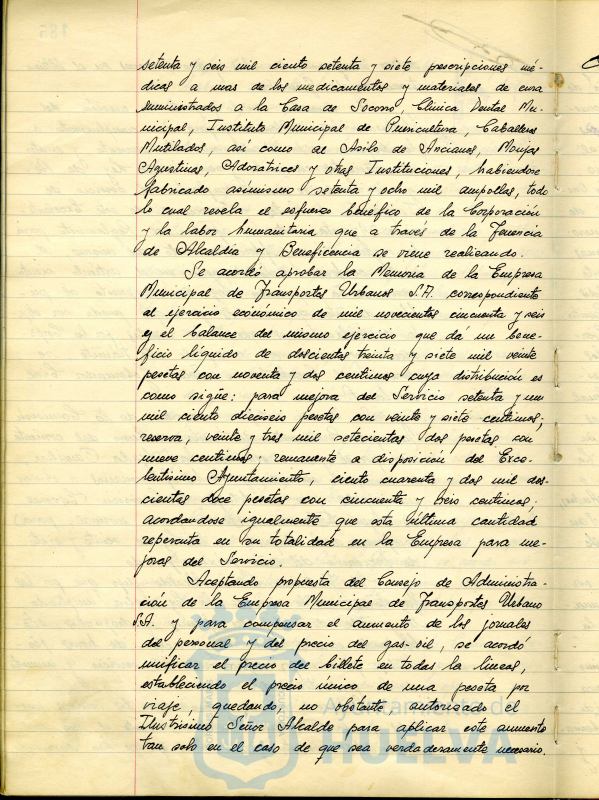 setenta y seis mil ciento setenta y siete prescripciones mé-
dicas a mas de los medicamentos y materiales de cura
suministrados a la Casa de Socorro, Clínica Dental Mu-
nicipal, Instituto Municipal de Puericultura, Caballeros
Mutilados, así como al Asilo de Ancianos, Monjas
Agustinas, Adoratrices y otras Instituciones, habiendose
fabricado asimismo setenta y ocho mil ampollas, todo
lo cual revela el esfuerzo benéfico de la Corporación
y la labor humanitaria que a través de la Tenencia
de Alcaldía y Beneficencia se viene realizando.
Se acordó aprobar la Memoria de la Empresa
Municipal de Transportes Urbanos S.A. correspondiente
al ejercicio económico de mil novecientos cincuenta y seis
y el balance del mismo ejercicio que dá un bene-
ficio líquido de doscientas treinta y siete mil veinte
pesetas con noventa y dos centimos cuya distribución es
como sigue: para mejora del Servicio setenta y un
mil ciento dieciseis pesetas con veinte y siete centimos;
reserva, veinte y tres mil setecientas dos pesetas con
nueve centimos; remanente a disposición del Exce-
lentísimo Ayuntamiento, ciento cuarenta y dos mil dos-
cientas doce pesetas con cincuenta y seis centimos;
acordandose igualmente que esta última cantidad
reperenta en su totalidad en la Empresa para me-
joras del Servicio.
Aceptando propuesta del Consejo de Administra-
ción de la Empresa Municipal de Transportes Urbano
S.A. y para compensar el aumento de los jornales
del personal y del precio del gas-oil, se acordó
unificar el precio del billete en todas la lineas,
estableciendo el precio único de una peseta por
viaje, quedando, no obstante autorizado el
Ilustrisimo Señor Alcalde para aplicar este aumento
tan solo en el caso de que sea verdaderamente necesario.
Ayuntamiento de
HUELVA